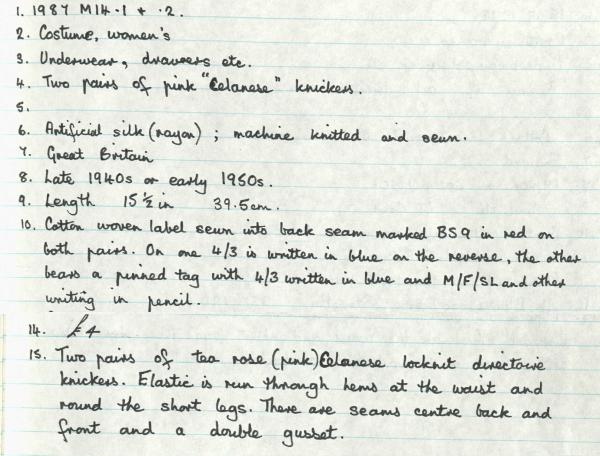 1. 1987 M14.1 + .2.
2. Costume, women's
3. Underwear, drawers etc.
4. Two pairs of pink "Celanese" knickers.
5.
6. Artificial silk (rayon) ; machine knitted and sewn.
7. Great Britain
8. Late 1940s or early 1950s.
9. Length 15½in 39.5cm.
10. Cotton woven label sewn into back seam marked BS9 in red on
both pairs. On one 4/3 is written in blue on the reverse, the other
bears a pinned tag with 4/3 written in blue and M/F/SL and other
writing in pencil.
14. £4
15. Two pairs of tea rose (pink) Celanese locknit directoire
knickers. Elastic is run through hems at the waist and
round the short legs. There are seams centre back and
front and a double gusset.